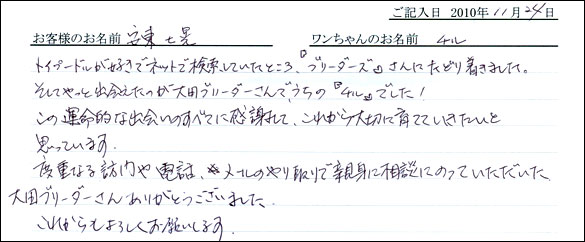 ご記入日 2010年11月24日
お客様のお名前 安東 七晃 ワンちゃんのお名前 チル
トイプードルが好きでネットで検索していたところ、『ブリーダーズ』さんにたどり着きました。
そしてやっと出会えたのが太田ブリーダーさんで、うちの『チル』でした！
この運命的な出会いのすべてに感謝して、これから大切に育てていきたいと
思っています。
度重なる訪問や電話、メールのやり取りで親身に相談にのっていただいた
太田ブリーダーさんありがとうございました。
これからもよろしくお願いします。